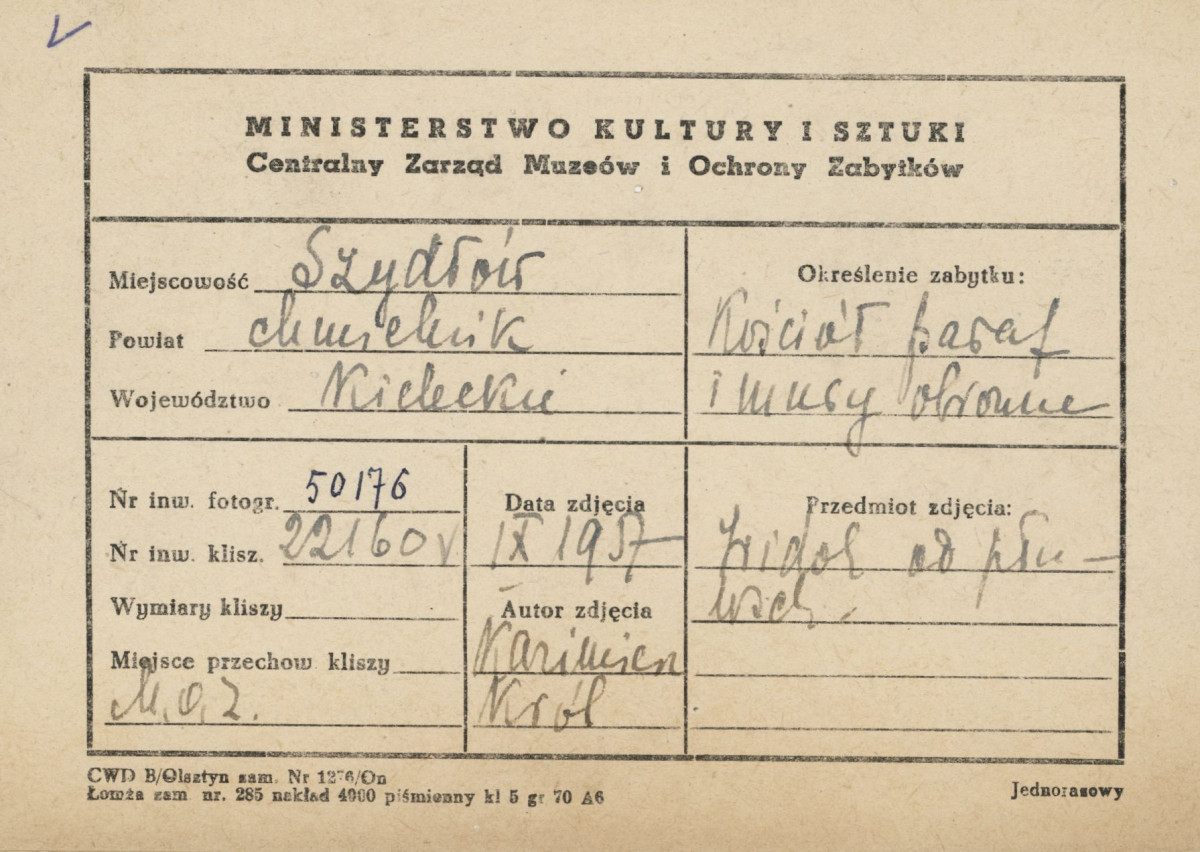 MINISTERSTWO KULTURY I SZTUKI
Centralny Zarząd Muzeów i Ochrony Zabytków
Miejscowość Szydłów
Powiat chmielnik
Województwo Kieleckie
Określenie zabytku:
Kościół paraf
i mury obronne
Nr inw. fotogr. 50176
Nr inw. klisz. 22160 v
Wymiary kliszy
Miejsce przechow kliszy
M.O.Z.
Data zdjęcia
IX 1957
Autor zdjęcia
Kazimierz
Król
Przedmiot zdjęcia:
Widok od płn-
wsch.
CWD B/Olsztyn zam. Nr 1276/On
Łomża zam nr. 285 nakład 4000 piśmienny kl 5 gr 70 A6
Jednorazowy